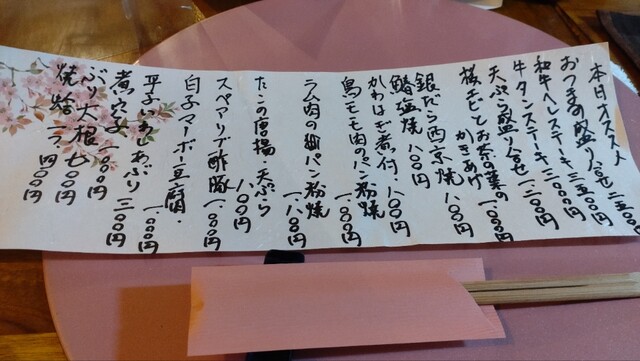 本日オススメ
おつまみ盛り合せ 二五〇〇円
和牛ヘレステーキ 三五〇〇円
牛タンステーキ 二〇〇〇円
天ぷら盛り合せ 一、二〇〇円
桜エビとお茶の葉の
かきあげ 一、〇〇〇円
銀だら西京焼 一、八〇〇円
鰆塩焼 八〇〇円
かわはぎ煮付 一、八〇〇円
鳥モモ肉のパン粉焼
一、〇〇〇円
ラム肉の パン粉焼
一、八〇〇円
たこの唐揚・天ぷら
八〇〇円
スペアリブ酢豚
一、〇〇〇円
白子マーボー豆腐
一、〇〇〇円
平子いわしあぶり
煮穴子 一、三〇〇円
ぶり大根 七〇〇円
焼蛤 二ツ 四〇〇円